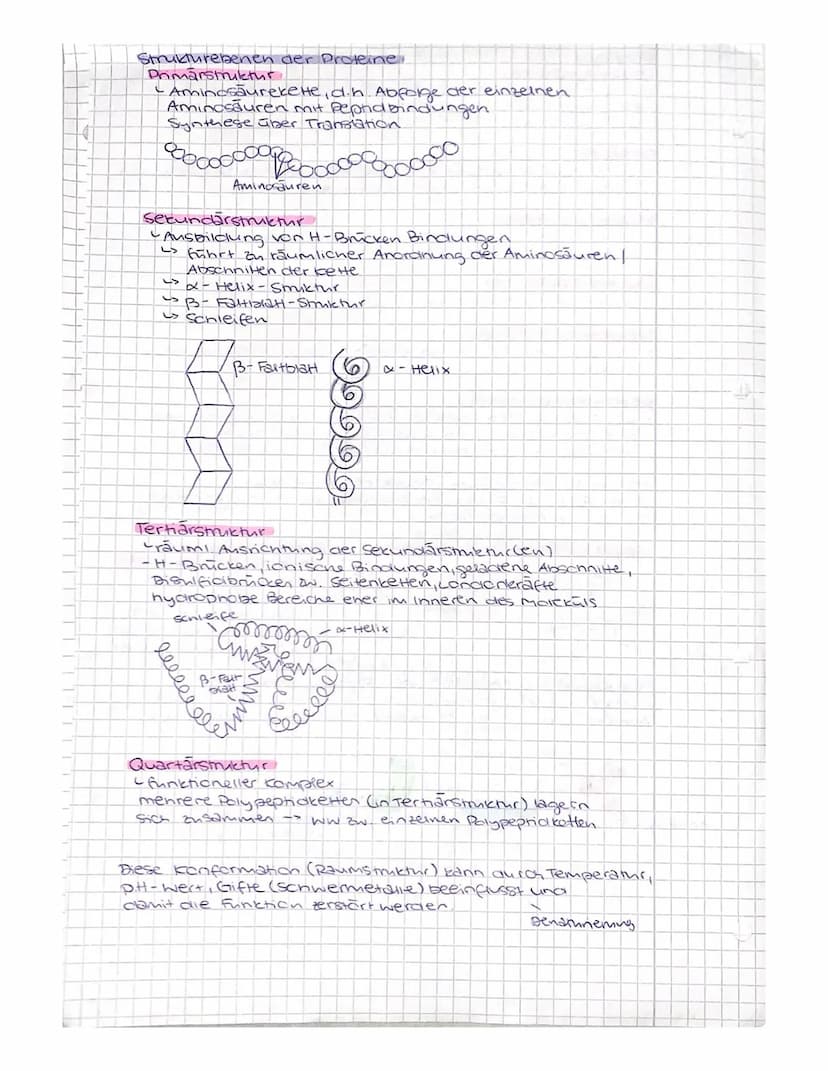 Strukturebenen der Proteine
Primärstruktur
↳ Aminosäurekette, d.h. Abfolge der einzelnen
Aminosäuren mit Peptidbindungen
Synthese über Translation
Aminosäuren
Sekundärstruktur
↳ Ausbildung von H-Brücken Bindungen
↳ führt zu räumlicher Anordnung der Aminosäuren /
Abschnitten der Kette
↳ α-Helix-Struktur
↳ β-Faltblatt-Struktur
↳ Schleifen
β-Faltblatt α-Helix
Tertiärstruktur
↳ räuml. Ausrichtung der Sekundärstruktur(en)
- H-Brücken, ionische Bindungen, geladene Abschnitte,
Disulfidbrücken zw. Seitenketten, Londonkräfte
hydrophobe Bereiche eher im Inneren des Moleküls
Schleife
α-Helix
β-Falt
blatt
Quartärstruktur
↳ funktioneller Komplex
mehrere Polypeptidketten (in Tertiärstruktur) lagern
sich zusammen --> WW zw. einzelnen Polypeptidketten
Diese Konformation (Raumstruktur) kann durch Temperatur,
pH-Wert, Gifte (Schwermetalle) beeinflusst und
damit die Funktion zerstört werden.
Denaturierung